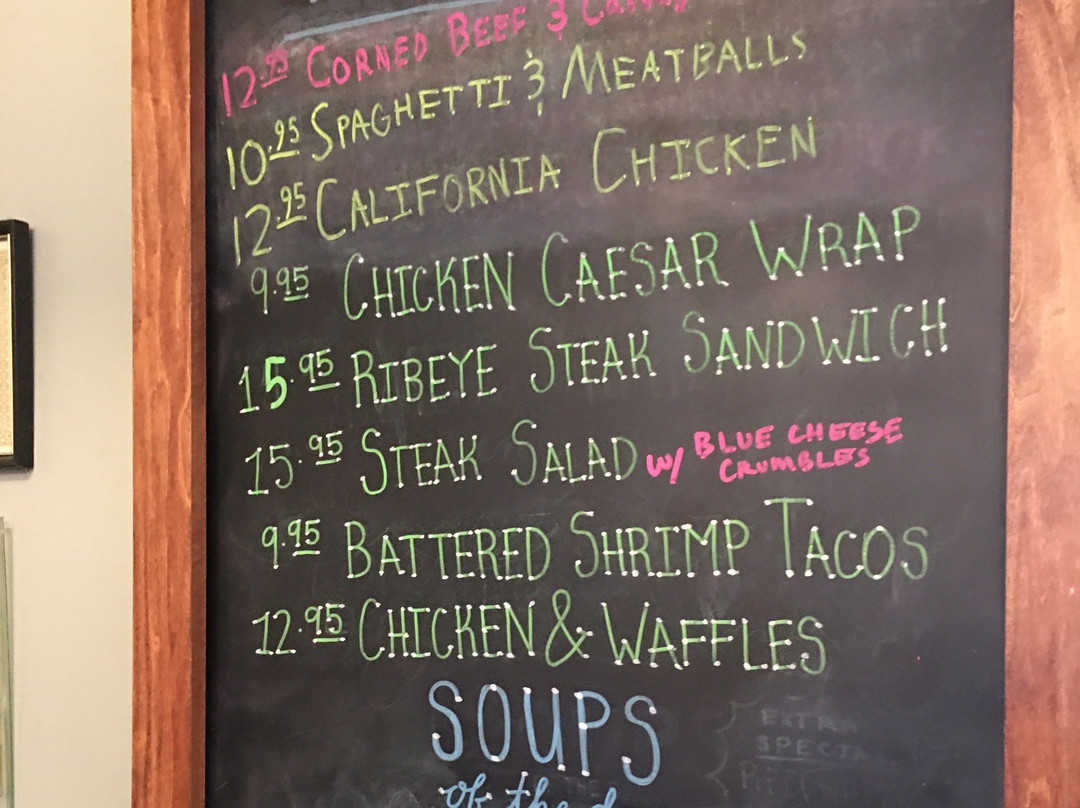 12.95 CORNED BEEF &
10.95 SPAGHETTI & MEATBALLS
12.95 CALIFORNIA CHICKEN
9.95 CHICKEN CAESAR WRAP
15.95 RIBEYE STEAK SANDWICH
15.95 STEAK SALAD w/ BLUE CHEESE
CRUMBLES
9.95 BATTERED SHRIMP TACOS
12.95 CHICKEN & WAFFLES
SOUPS
of the
EXTRA